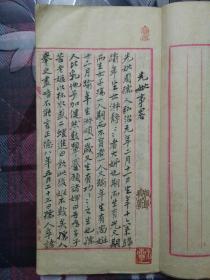 先妣事略
先妣周孺人弘治元年二月十一日生年十六來歸
踰年生女淑靜〻〻者大姊也期而生有光又期
而生女子殤一人期而不育者一人又踰年生有尚妊
十二月踰年生淑順一歲又生有功〻〻之生也孺
人比乳他子加健然數顰蹙顧諸婢曰吾為多子
苦老嫗以杯水盛二螺進曰飲此後妊不數矣孺人
舉之盡喑不能言正德八年五月二十三日孺人卒諸